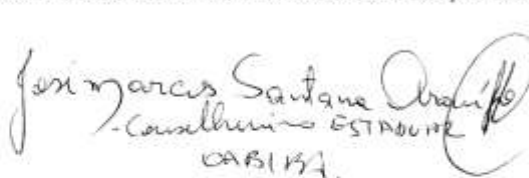 Josimarcus Santana Araújo
Conselheiro ESTADUAL
OAB/BA.